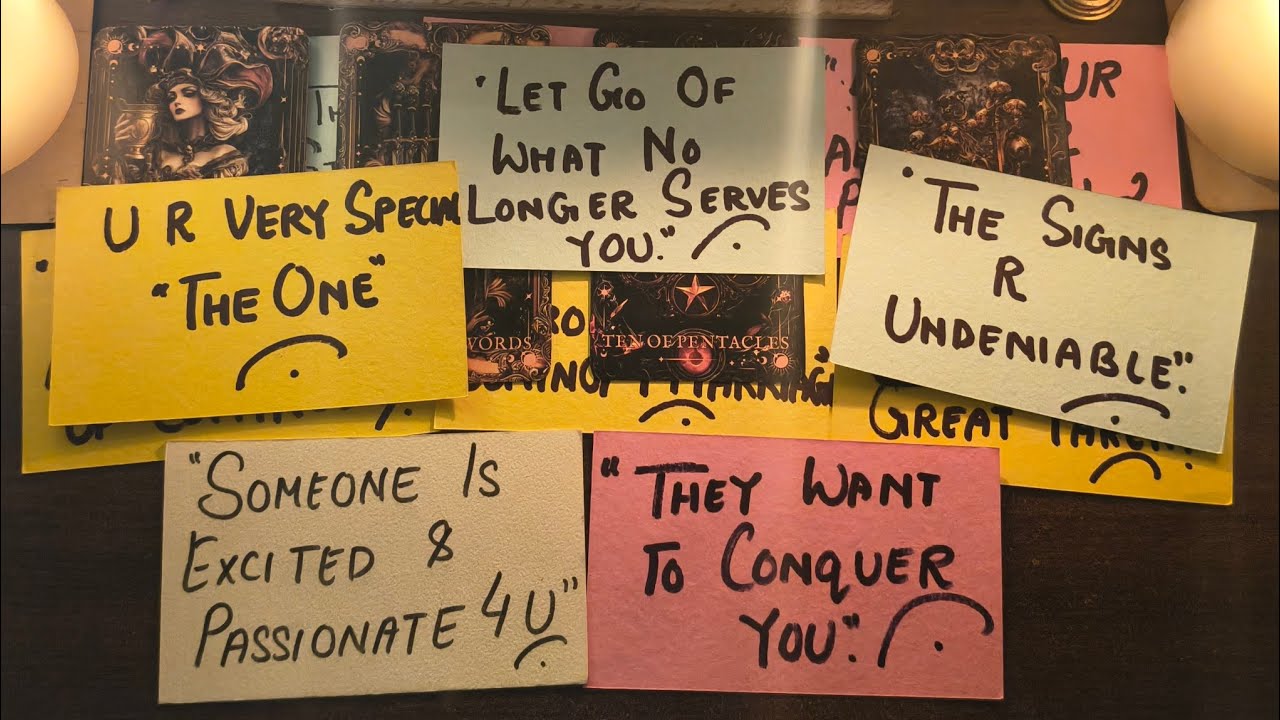 "LET GO OF
WHAT NO
LONGER SERVES
YOU."
UR
U R VERY SPECIAL
"THE ONE"
"THE SIGNS
R
UNDENIABLE."
TEN OF PENTACLES
GREAT
"SOMEONE IS
EXCITED &
PASSIONATE 4 U"
"THEY WANT
TO CONQUER
YOU".